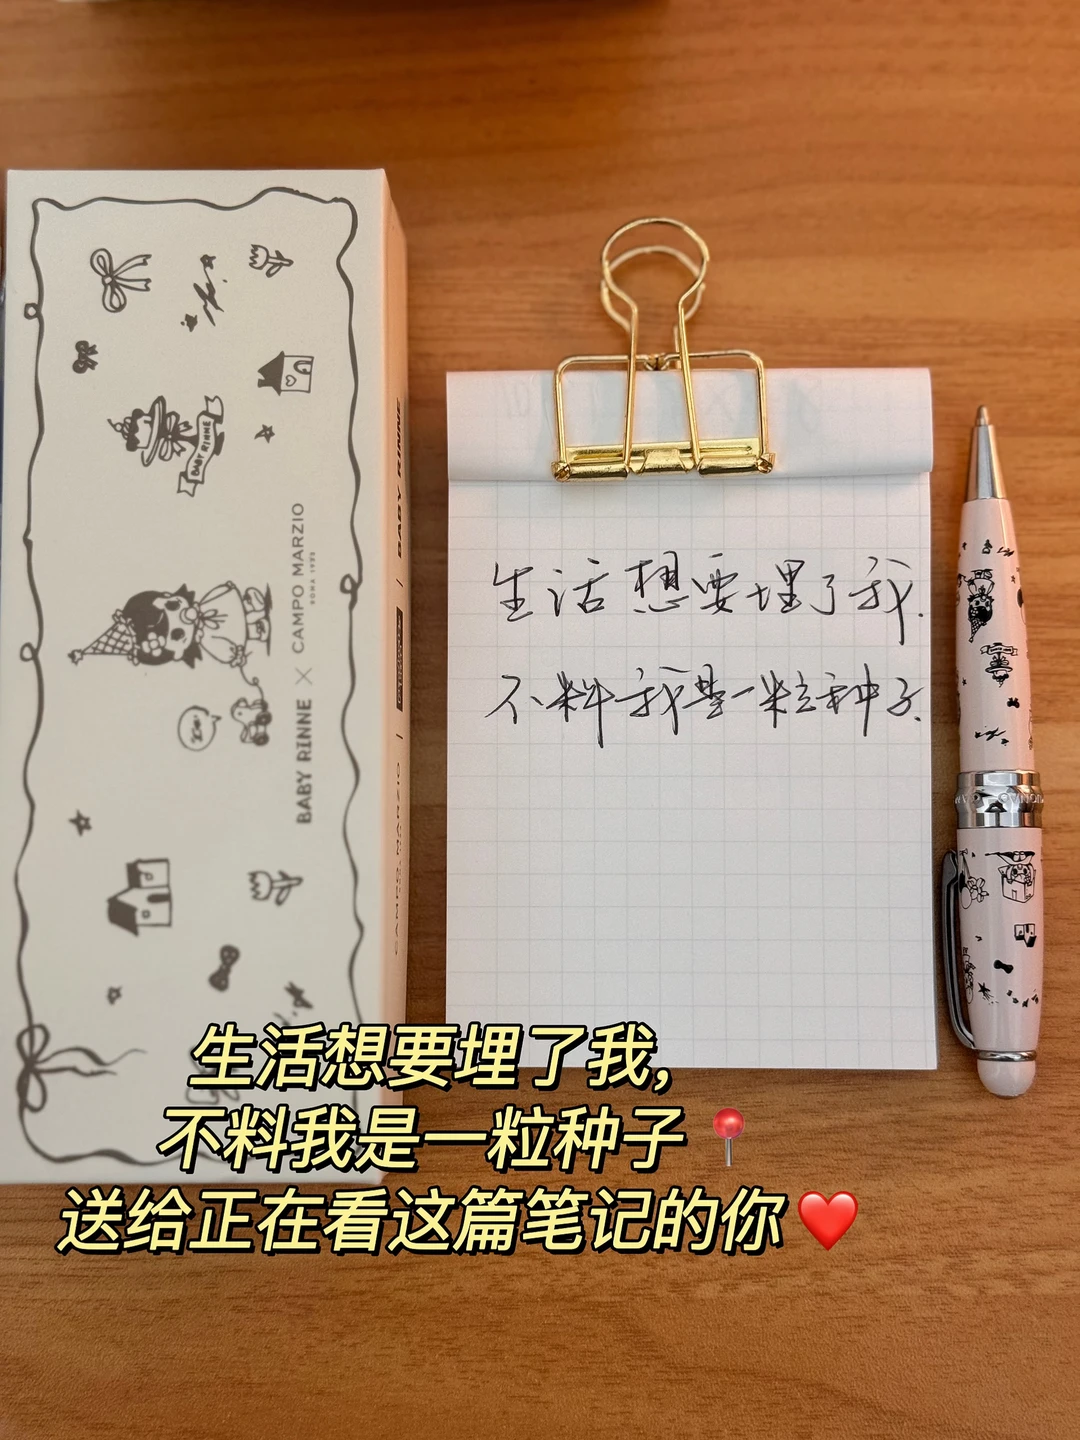 BABY RINNE
BABY RINNE × CAMPO MARZIO
ROMA 1933
BABY RINNE
CAMPO MARZIO
生活想要埋了我.
不料我是一粒种子.
生活想要埋了我,
不料我是一粒种子📍
送给正在看这篇笔记的你❤️